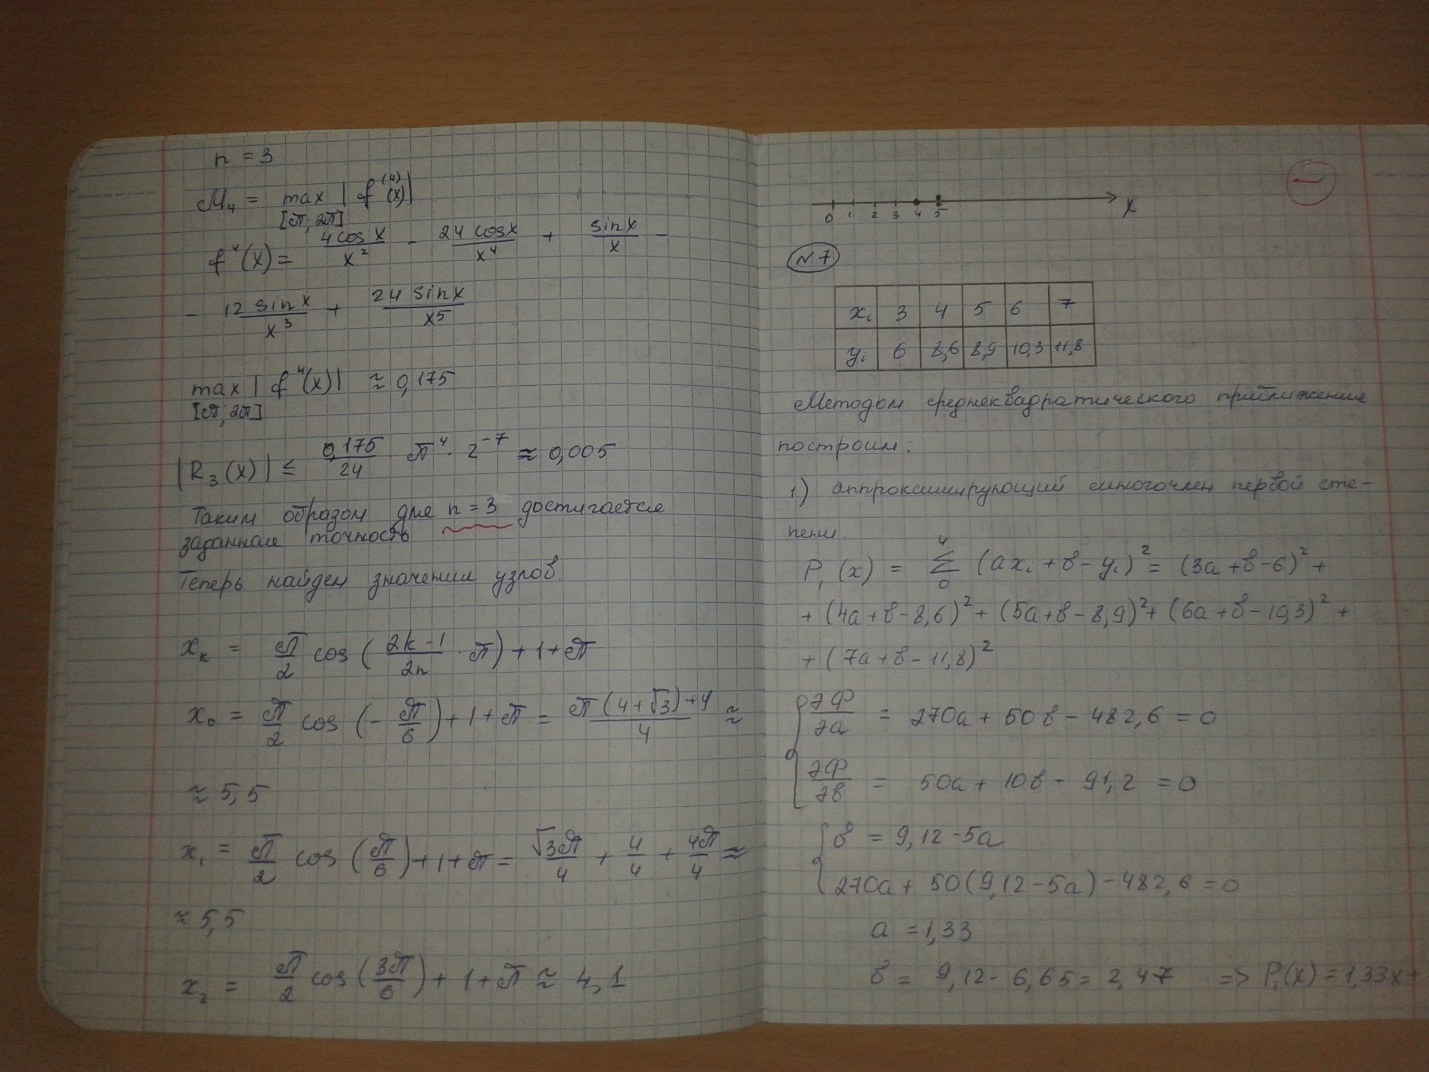 n = 3
M₄ = max |f⁽⁴⁾(x)|
[π; 2π]
f⁴(x) = 4cosx/x² - 24cosx/x⁴ + sinx/x -
- 12sinx/x³ + 24sinx/x⁵
max |f⁴(x)| ≈ 0,175
[π; 2π]
|R₃(x)| ≤ 0,175/24 · π⁴ · 2⁻⁷ ≈ 0,005
Таким образом для n = 3 достигается
заданная точность
Теперь найдем значения узлов
xₖ = π/2 cos(2k-1/2n · π) + 1 + π
x₀ = π/2 cos(-π/6) + 1 + π = π(4+√3)+4/4 ≈
≈ 5,5
x₁ = π/2 cos(π/6) + 1 + π = √3π/4 + 4/4 + 4π/4 ≈
≈ 5,5
x₂ = π/2 cos(3π/6) + 1 + π ≈ 4,1
0 1 2 3 4 5 x
№7
xᵢ 3 4 5 6 7
yᵢ 6 8,6 8,9 10,3 11,8
Методом среднеквадратического приближения
построим:
1) аппроксимирующий многочлен первой сте-
пени
P₁(x) = 4Σ0 (axᵢ + b - yᵢ)² = (3a + b - 6)² +
+ (4a + b - 8,6)² + (5a + b - 8,9)² + (6a + b - 10,3)² +
+ (7a + b - 11,8)²
∂Φ/∂a = 270a + 50b - 482,6 = 0
∂Φ/∂b = 50a + 10b - 91,2 = 0
b = 9,12 - 5a
270a + 50(9,12 - 5a) - 482,6 = 0
a = 1,33
b = 9,12 - 6,65 = 2,47 => P₁(x) = 1,33x +